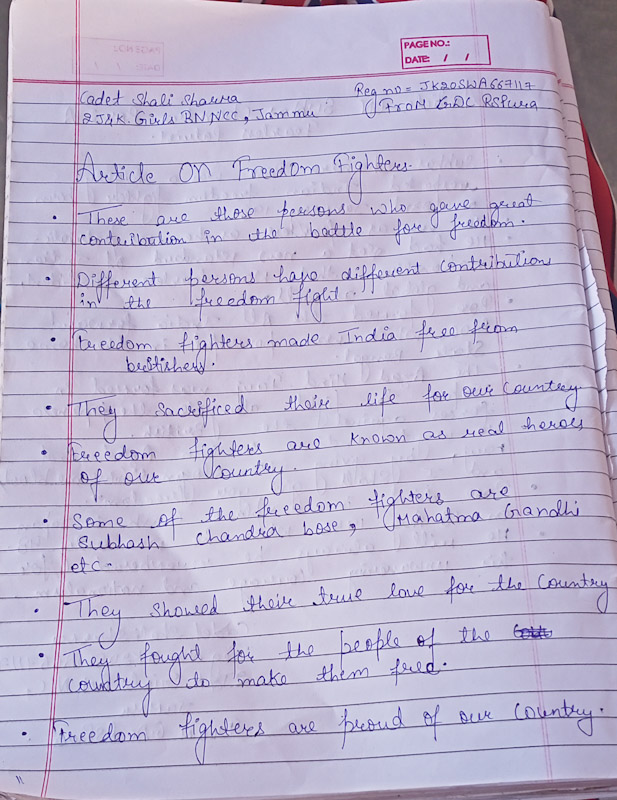 PAGE NO.:
DATE: / /
Cadet Shali Sharma
Reg no = JK20SWA667117
2 J&K. Girls BN NCC, Jammu
From GDC RSPura
Article On Freedom Fighters.
• These are those persons who gave great
contribution in the battle for freedom.
• Different persons have different contribution
in the freedom fight.
• Freedom fighters made India free from
britishers.
• They sacrificed their life for our country.
• Freedom fighters are known as real heroes
of our country.
• Some of the freedom fighters are
Subhash Chandra bose, Mahatma Gandhi
etc.
• They showed their true love for the Country
• They fought for the people of the
country do make them free.
• Freedom fighters are proud of our Country.